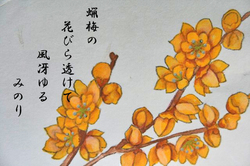 蝋梅の
花びら透けて
風冴ゆる
みのり